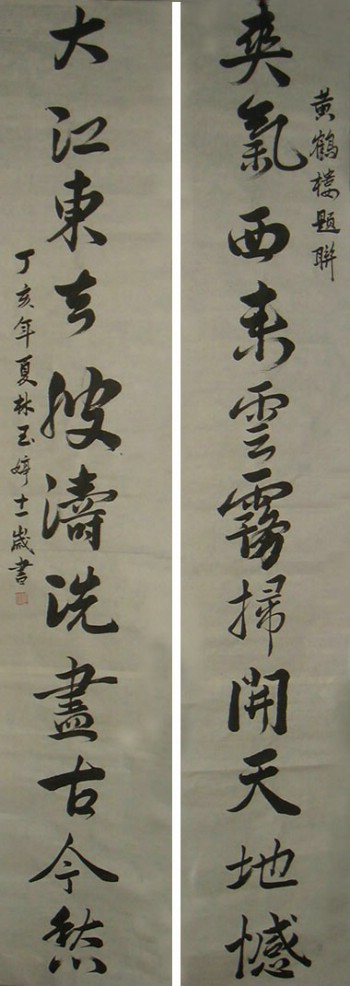 黃鶴樓題聯
爽氣西來雲霧掃開天地憾
大江東去波濤洗盡古今愁
丁亥年夏林玉婷十一歲書